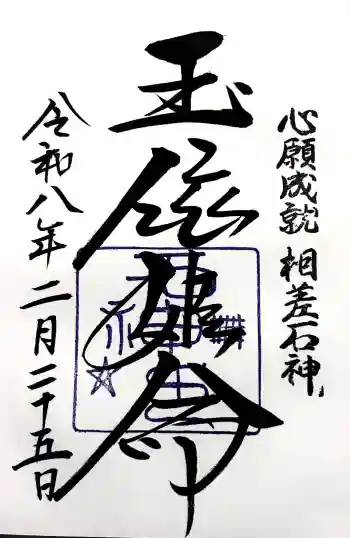 心願成就 相差石神
玉依姫命
石神
令和八年二月二十五日